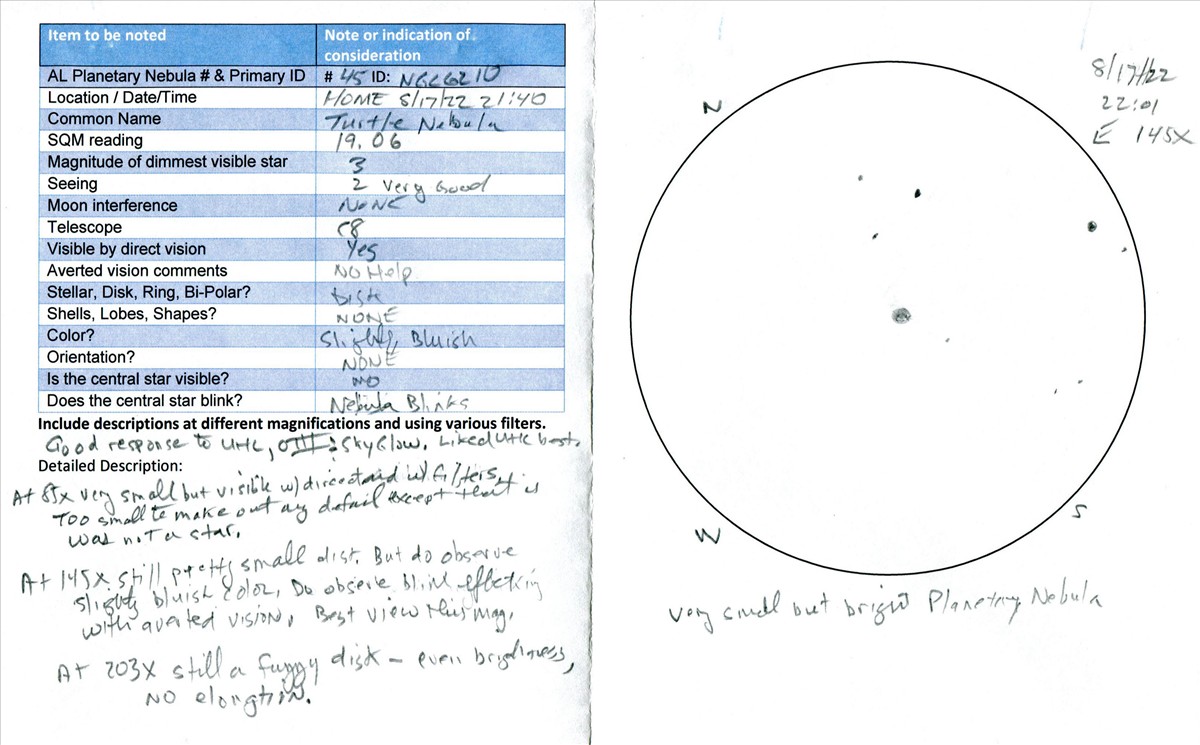 Item to be noted Note or indication of consideration
AL Planetary Nebula # & Primary ID # 45 ID: NGC6210
Location / Date/Time HOME 8/17/22 21:40
Common Name Turtle Nebula
SQM reading 19.06
Magnitude of dimmest visible star 3
Seeing 2 Very Good
Moon interference NONE
Telescope C8
Visible by direct vision Yes
Averted vision comments NO Help
Stellar, Disk, Ring, Bi-Polar? Disk
Shells, Lobes, Shapes? NONE
Color? Slightly Bluish
Orientation? NONE
Is the central star visible? NO
Does the central star blink? Nebula Blinks
Include descriptions at different magnifications and using various filters.
Good response to UHC, OIII & SkyGlow. Liked UHC best.
Detailed Description:
At 85x very small but visible w/ direct and w/ filters.
Too small to make out any detail except that it
was not a star.
At 145x still pretty small disk. But do observe
slightly bluish color. Do observe blink effect
with averted vision. Best view this mag.
At 203x still a fuzzy disk – even brightness,
NO elongtion.
8/17/22
22:01
E 145x
N
S
W
very small but bright Planetary Nebula